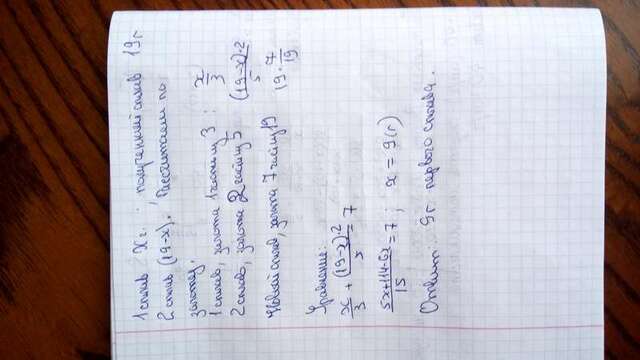 1 сплав x г. ; полученный сплав 19 г
2 сплав (19-x). Рассчитаем по
золоту.
1 сплав, золота 1 часть из 3 : x/3
2 сплав, золота 2 части из 5 (19-x)·2/5
Новый сплав, золота 7 частей из 19 19·7/19
Уравнение:
x/3 + (19-x)·2/5 = 7
5x+114-6x/15 = 7 ; x = 9(г)
Ответ: 9 г первого сплава.